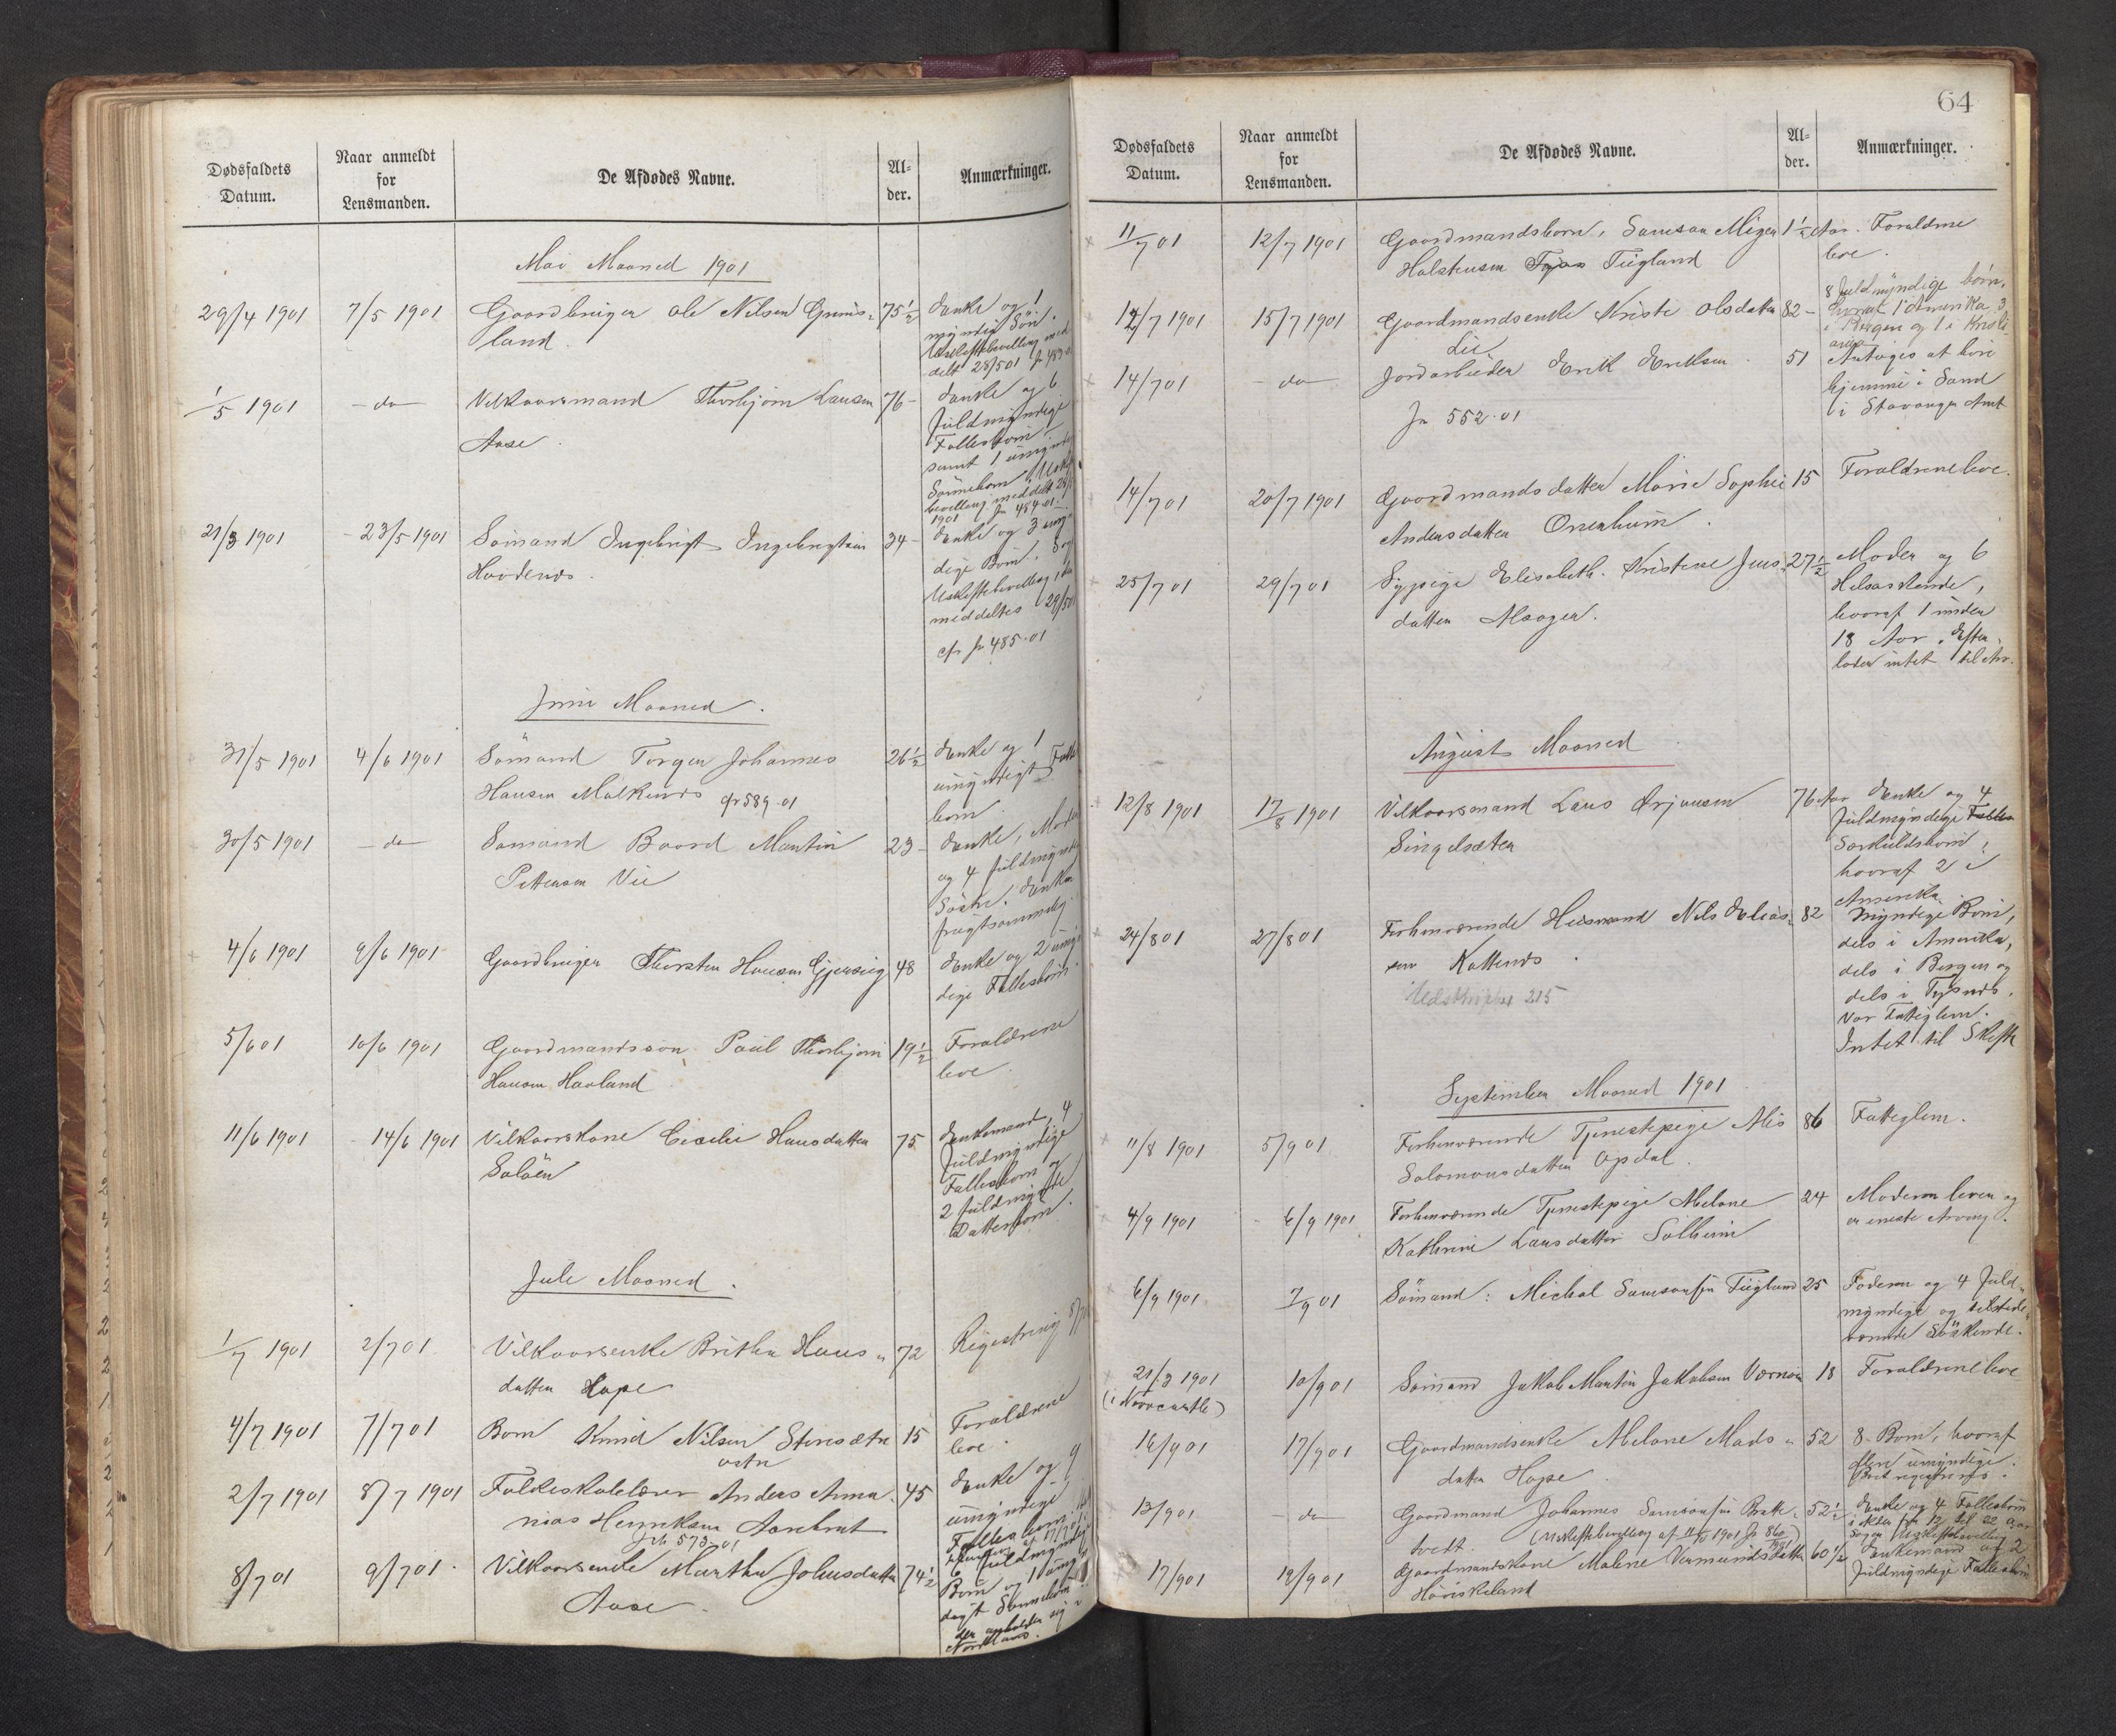 Dødsfaldets
Datum.
Naar anmeldt
for
Lensmanden.
De Afdødes Navne.
Al-
der.
Anmærkninger.
Mai Maaned 1901
29/4 1901 7/5 1901 Gaardbruger Ole Nilsen Gruns- 75½ Enke og 1
land. myndig Søn.
Uskiftebevilling med
delt 28/5 01 J 483.0
1/5 1901 - do - Vilkaarsmand Thorbjørn Larsen 76 - Enke og 6
Aase. fuldmyndige
Fællesbørn
samt 1 umyndig
Sønnebarn Usk
bevilling meddelt 28/
1901 Jn 484.01
21/3 1901 - 23/5 1901 Sømand Ingebrigt Ingebrigtsen 34 - Enke og 3 umyn
Hovdenes. dige Børn.
Uskiftebevilling
meddeltes 29/5 01
cfr Jn 485.01
Juni Maaned.
31/5 1901 4/6 1901 Sømand Torger Johannes 26½ Enke og 1
Hansen Malkenes cfr 589.01 umyndigt Fælles
barn
30/5 1901 - do - Sømand Baard Martin 23 - Enke, Moder
Pettersen Vie og 4 fuldmyndige
Søstre. Enken
frugtsommelig.
4/6 1901 9/6 1901 Gaardbruger Thorsten Hansen Gjersvig 48 Enke og 2 umyn
dige Fællesbørn
5/6 01 10/6 1901 Gaardmandssøn Paul Thorbjørn 19½ Forældrene
Hansen Haaland leve.
11/6 1901 - 14/6 1901 Vilkaarskone Cecilie Hansdatter 75 Enkemand, 4
Saløen fuldmyndige
Fællesbørn og
2 fuldmyndige
Datterbørn.
Jule Maaned.
1/7 1901 2/7 01 Vilkaarsenke Brithe Hans- 72 Registrering 8/7
datter Hope
4/7 1901 7/7 01 Barn Knud Nilsen Stensæter 15 Forældrene
østre leve.
2/7 1901 8/7 1901 Folkeskolelærer Anders Anna- 45 Enke og 9
nias Henriksen Aarbrot umyndige
Jn 573.01 Fællesbørn
8/7 01 9/7 01 Vilkaarsenke Martha Johnsdatter 74½ 6 fuldmyndige
Aase Børn og 1 umyn
digt Sønnebarn
der opholder sig i
Nordland.
64
Dødsfaldets
Datum.
Naar anmeldt
for
Lensmanden.
De Afdødes Navne.
Al-
der.
Anmærkninger.
11/7 01 12/7 1901 Gaardmandsbarn, Samson Miger 1½ Aar. Forældrene
Halstensen Teigland leve.
12/7 1901 15/7 1901 Gaardmandsenke Kristi Olsdatter 82 - 8 fuldmyndige børn,
Lie hvoraf 1 i Amerika 3
i Bergen og 1 i Kristi
ania
14/7 01 - do - Jordarbeider Erik Eriksen 51 Antages at høre
Jn 552.01 hjemme i Sand
i Stavanger Amt
14/7 01 20/7 1901 Gaardmandsdatter Marie Sophie 15 Forældrene leve.
Andersdatter Onerheim.
25/7 01 29/7 01 Sypige Elisabeth Kristine Jens- 27½ Moder og 6
datter Alsager. Helsøskende,
hvoraf 1 under
18 Aar. Efter-
lader intet til Arv.
August Maaned
12/8 1901 17/8 1901 Vilkaarsmand Lars Ørjansen 76 Aar Enke og 4
Singelsæter fuldmyndige Fælles
Særkuldsbørn,
hvoraf 2 i
Amerika
24/8 01 27/8 01 Forhenværende Husmand Nils Elias- 82 Myndige Børn,
sen Kattenes. dels i Amerika,
215 dels i Bergen og
dels i Tysnes.
Var Fattiglem.
Intet til Skifte
September Maaned 1901
11/8 1901 5/9 01 Forhenværende Tjenestepige Alis 86 Fattiglem.
Salomonsdatter Opdal.
4/9 1901 - 6/9 1901 Forhenværende Tjenestepige Melone 24 Moderen lever og
Kathrine Larsdatter Solheim er eneste Arving.
6/9 1901 7/9 01 Sømand: Michal Samsonsen Teigland 25 Faderen og 4 fuld-
myndige og tilstede-
værende Søskende.
21/3 1901 10/9 01 Sømand Jakob Martin Jakobsen Værnøen 18 Forældrene leve
(i Newcastle)
16/9 01 17/9 01 Gaardmandsenke Melone Mads- 52 8 Børn, hvoraf
datter Hope. flere umyndige.
Bret registreres.
13/9 01 - do Gaardmand Johannes Samsonsen Brette- 52½ Enke og 4 Fællesbørn
tvedt. (Uskiftebevilling af 11/10 1901 Jn 860) i Alder fra 12 til 22 Aar
Søger Uskiftebevilling
17/9 01 19/9 01 Gaardmandskone Malene Vermundsdatter 60½ Enkemand og 2
Høviskeland fuldmyndige Fællesbørn